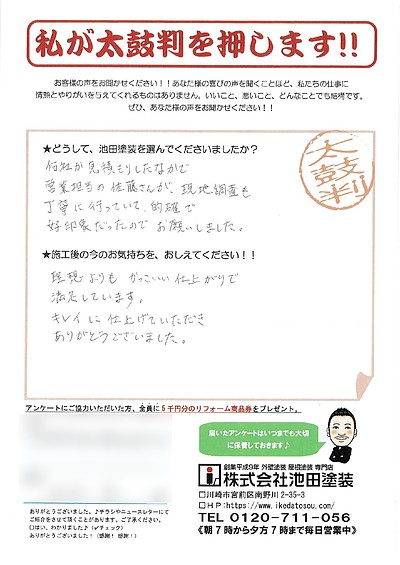 私が太鼓判を押します!!
お客様の声をお聞かせください！！あなた様の喜びの声を聞くことほど、私たちの仕事に
情熱とやりがいを与えてくれるものはありません。いいこと、悪いこと、どんなことでも結構です。
ぜひ、あなた様の声をお聞かせください！！
太鼓判
★どうして、池田塗装を選んでくださいましたか？
何社か見積もりしたなかで
営業担当の佐藤さんが、現地調査も
丁寧に行っていて、的確で
好印象だったのでお願いしました。
★施工後の今のお気持ちを、おしえてください！！
理想よりもかっこいい仕上がりで
満足しています。
キレイに仕上げていただき
ありがとうございました。
アンケートにご協力いただいた方、全員に5千円分のリフォーム商品券をプレゼント。
届いたアンケートはいつまでも大切
に保管しておきます♪
創業平成9年 外壁塗装 屋根塗装 専門店
株式会社池田塗装
□川崎市宮前区南野川2-35-3
□HP:https://www.ikedatosou.com/
TEL 0120-711-056
《朝7時から夕方7時まで毎日営業中》
ありがとうございました。♪チラシやニュースレターにて
ご紹介をさせて頂くことがあります。ご了承ください。
□はい、わかりました♪（✓チェック）
ありがとうございました！（感謝！感謝！）